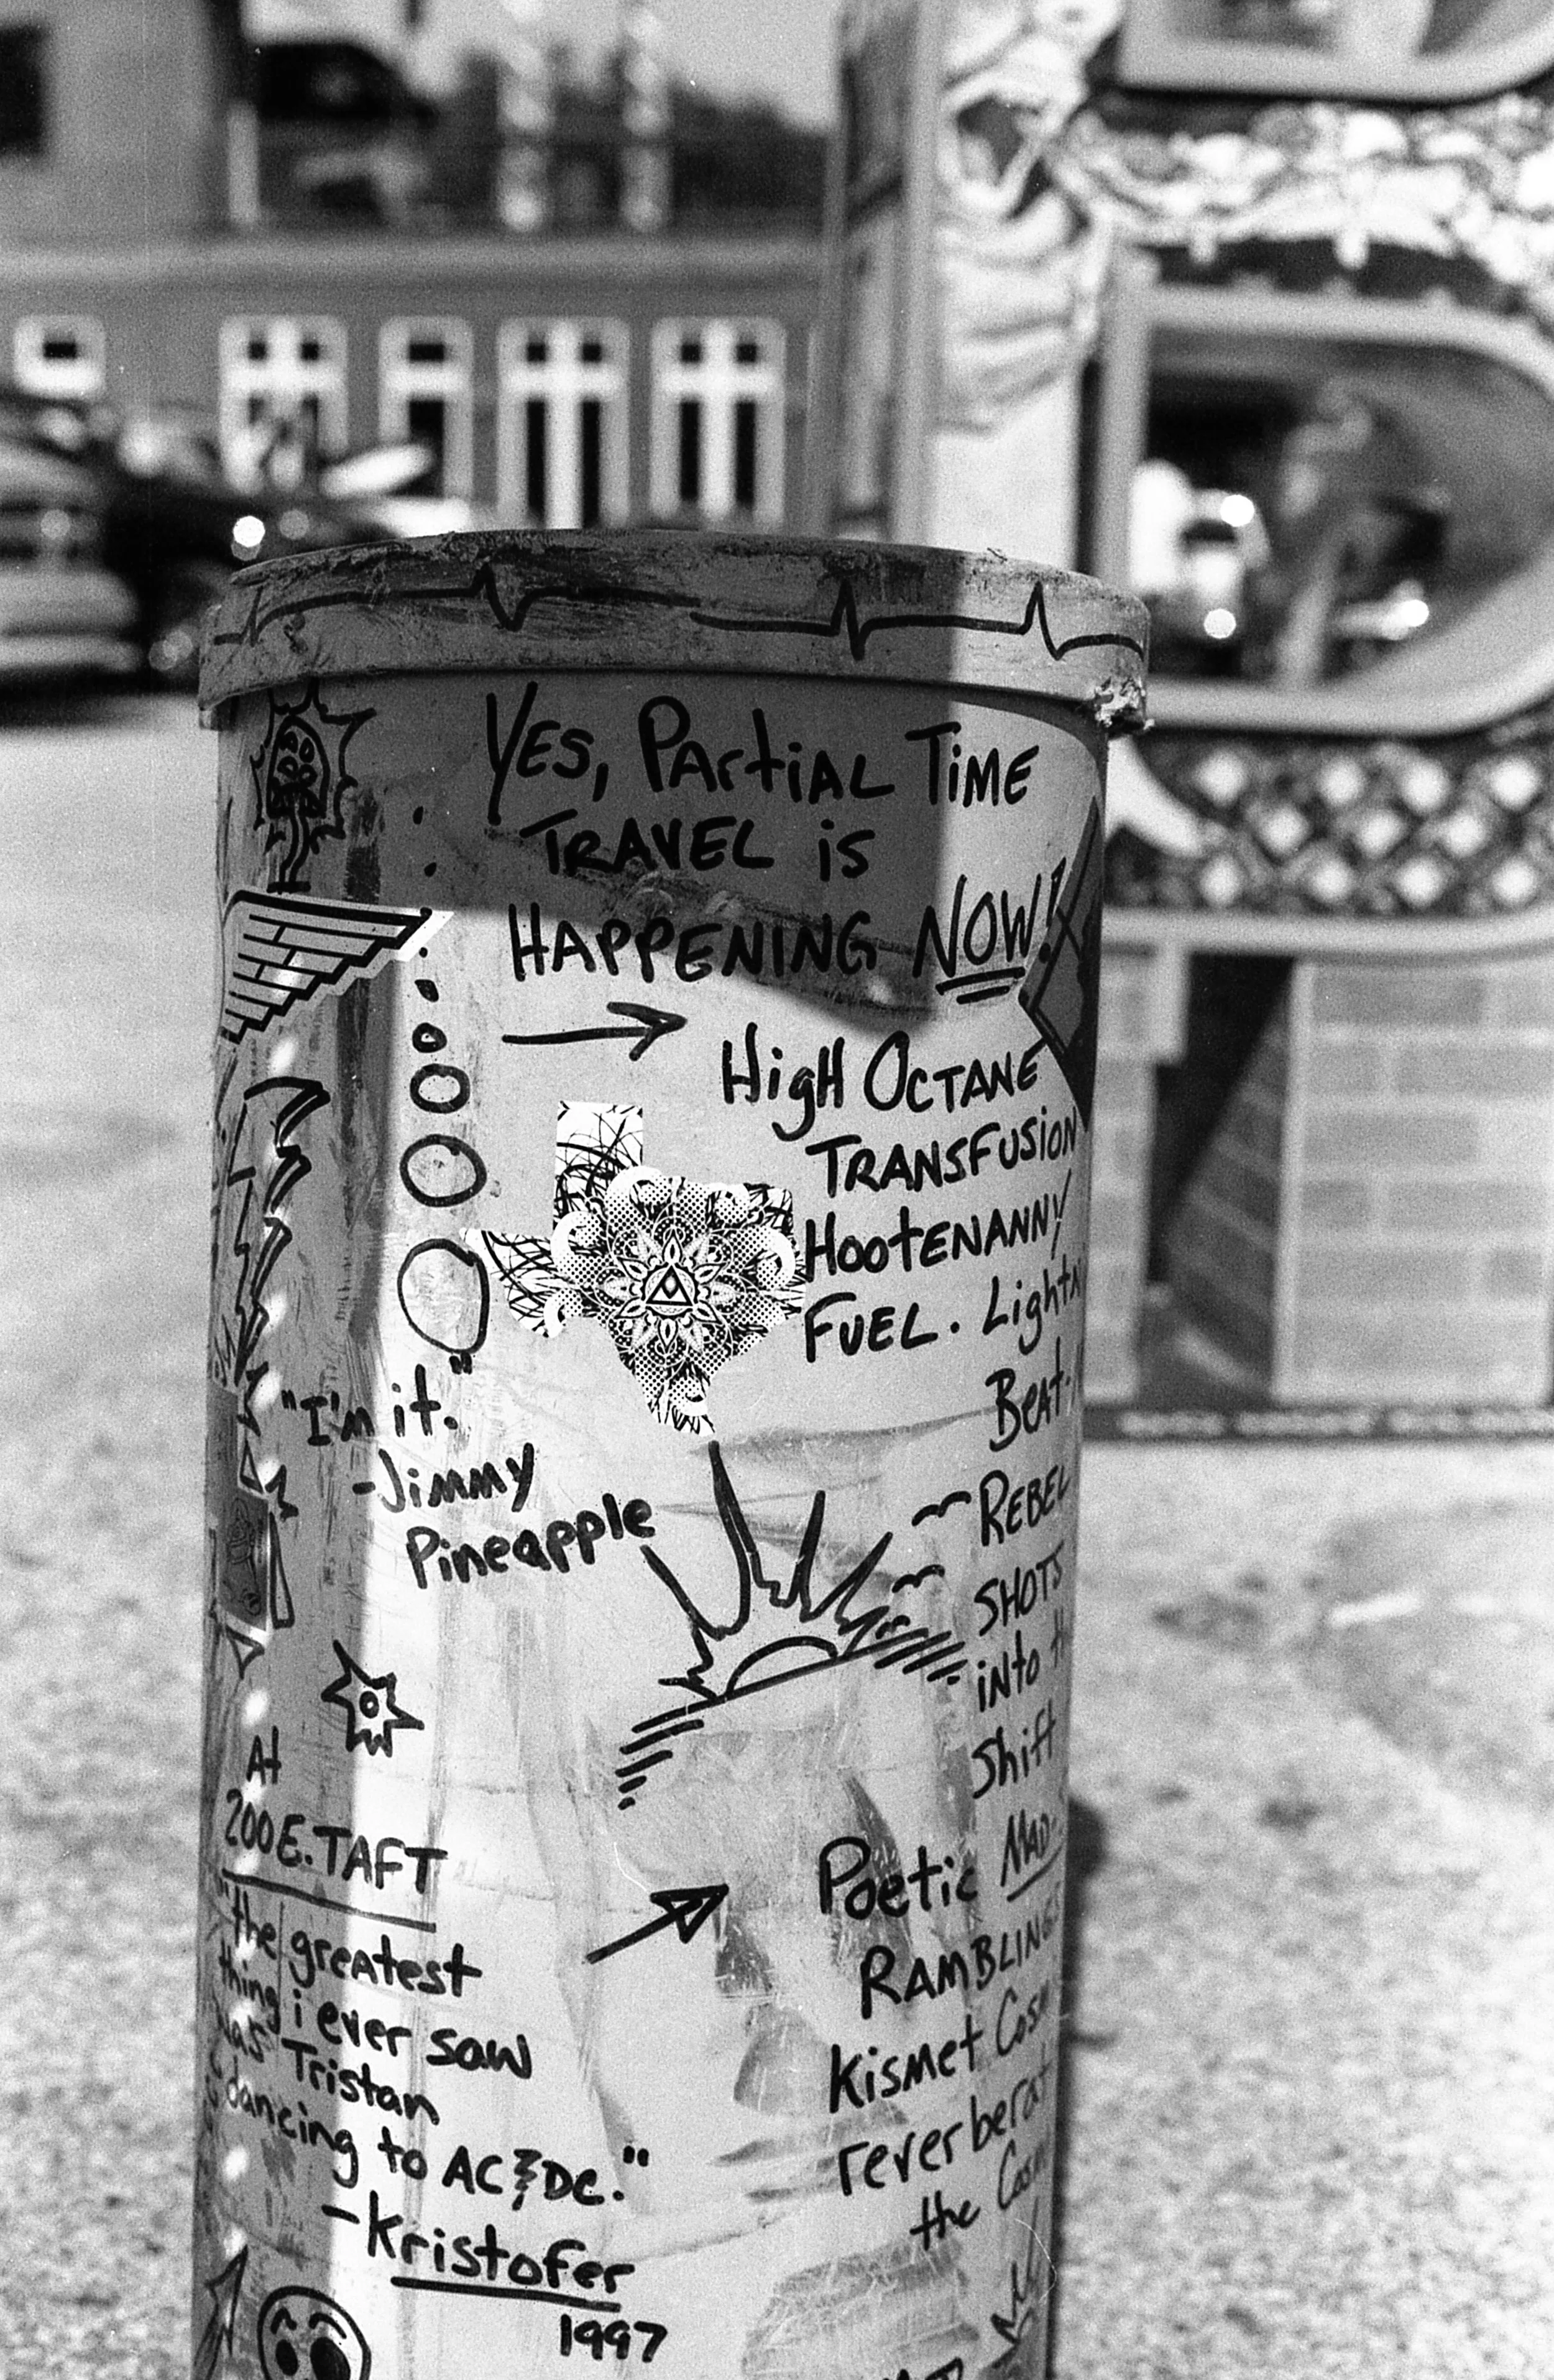 YES, PARtiAL TiME
TRAVEL is
HAPPENING NOW!
HigH OCTANE
TRANSFUSION
HOOtENANNY
FUEL. Light
Beat
REBEL
SHOTS
iNto
Shift
"I'm it."
-Jimmy
Pineapple
At
200 E. TAFT
"the greatest
thing i ever saw
was Tristan
dancing to AC DC."
-Kristofer
1997
Poetic MAD-
RAMBLINGS
Kismet
reverberat
the